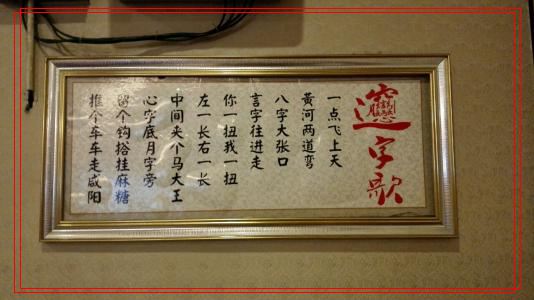 𰻝字歌
一点飞上天
黄河两道弯
八字大张口
言字往进走
你一扭我一扭
左一长右一长
中间夹个马大王
心字底月字旁
留个钩搭挂麻糖
推个车车走咸阳